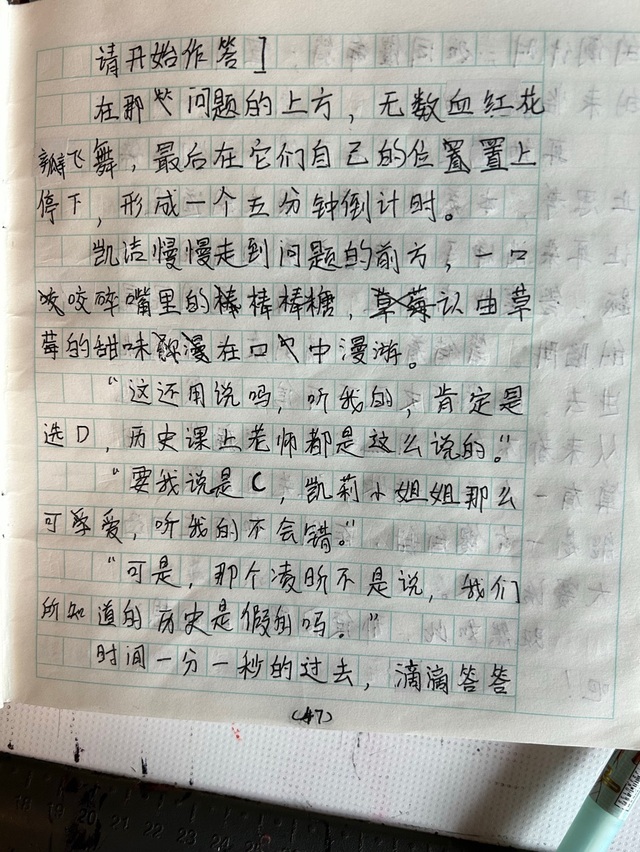 请开始作答】
在那些问题的上方，无数血红花
瓣飞舞，最后在它们自己的位置置上
停下，形成一个五分钟倒计时。
凯洁慢慢走到问题的前方，一口
咬碎嘴里的棒棒糖，任由草
莓的甜味在口中漫游。
“这还用说吗，听我的，肯定是
选D，历史课上老师都是这么说的。”
“要我说是C，凯莉小姐姐那么
可爱，听我的不会错。”
“可是，那个凌昕不是说，我们
所知道的历史是假的吗。”
时间一分一秒的过去，滴滴答答
(47)